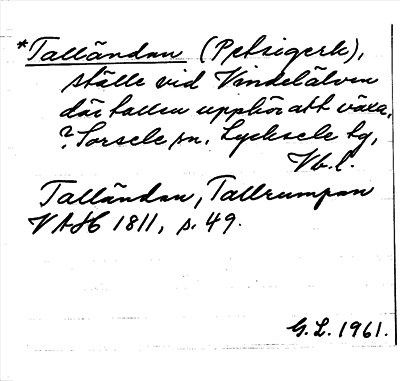 *Talländan (Petsigerk),
ställe vid Vindelälven
där tallen upphör att växa.
? Sorsele sn, Lycksele tg,
Vb. l.
Talländan, Tallrumpan
VAH 1811, s. 49.
G. L. 1961.